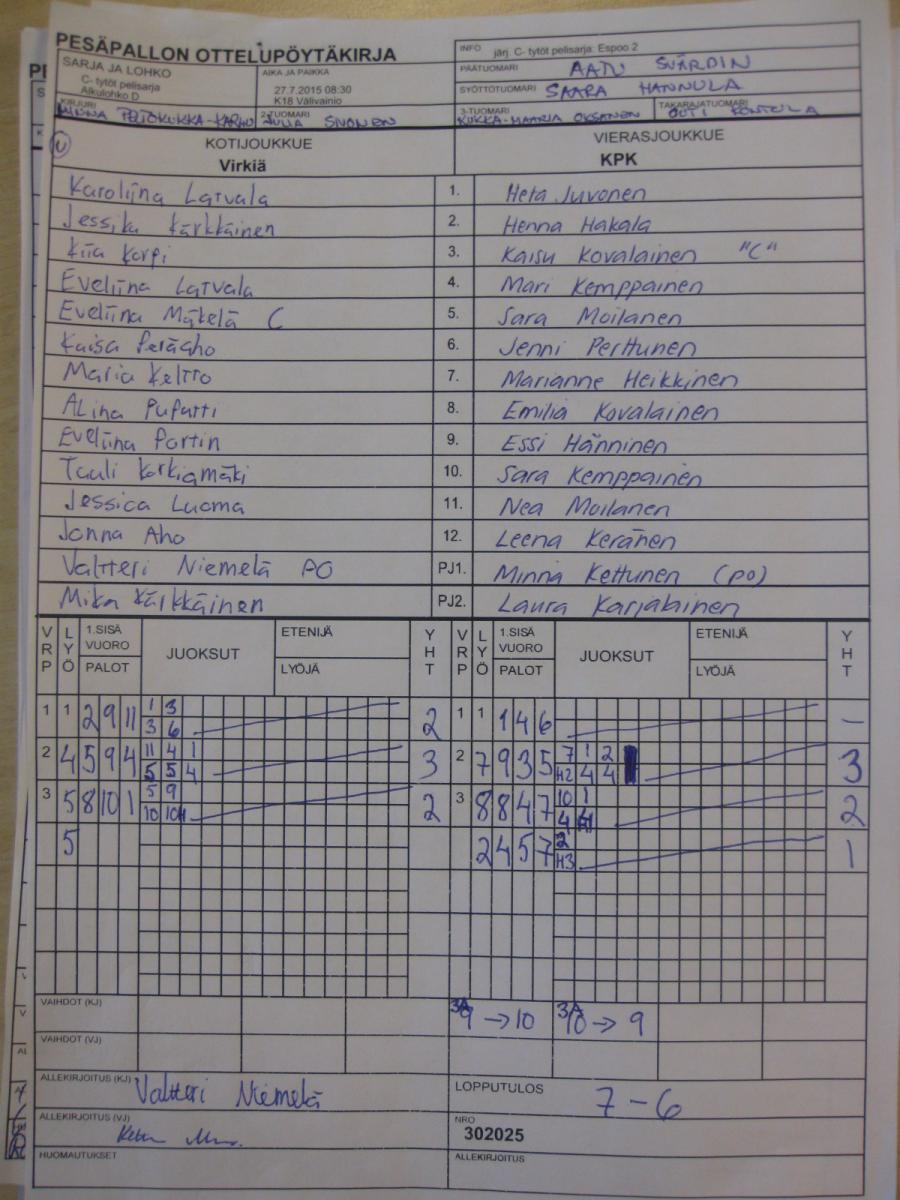 PESÄPALLON OTTELUPÖYTÄKIRJA
INFO järj. C- tytöt pelisarja: Espoo 2
SARJA JA LOHKO
C- tytöt pelisarja
Alkulohko D
AIKA JA PAIKKA
27.7.2015 08:30
K18 Välivainio
PÄÄTUOMARI AATU SVÄRDIN
SYÖTTÖTUOMARI SAARA HANNULA
KIRJURI MINNA PELTOKUKKA-KARHU
2-TUOMARI JULIA SNONEN
3-TUOMARI KUKKA-MAARIA OKSANEN
TAKARAJATUOMARI OUTI KONTULA
U
KOTIJOUKKUE VIERASJOUKKUE
Virkiä KPK
Karoliina Latvala 1. Heta Juvonen
Jessika Kärkkäinen 2. Henna Hakala
Kiia Korpi 3. Kaisu Kovalainen "C"
Eveliina Latvala 4. Mari Kemppainen
Eveliina Mäkelä C 5. Sara Moilanen
Kaisa Peräaho 6. Jenni Perttunen
Maria Keltto 7. Marianne Heikkinen
Alina Pupatti 8. Emilia Kovalainen
Eveliina Portin 9. Essi Hänninen
Tuuli Korkiamäki 10. Sara Kemppainen
Jessica Luoma 11. Nea Moilanen
Jonna Aho 12. Leena Keränen
Valtteri Niemelä PO PJ1. Minna Kettunen (po)
Mika Kärkkäinen PJ2. Laura Karjalainen
VRP LYÖ 1.SISÄ VUORO PALOT JUOKSUT ETENIJÄ LYÖJÄ YHT VRP LYÖ 1.SISÄ VUORO PALOT JUOKSUT ETENIJÄ LYÖJÄ YHT
1 1 2 9 11 1 3 2 1 1 1 4 6 –
3 6
2 4 5 9 4 11 4 1 3 2 7 9 3 5 7 1 2 3
5 5 4 H2 4 4
3 5 8 10 1 5 9 2 3 8 8 4 7 10 1 2
10 10H 4
5 2 4 5 7 2 1
H3
VAIHDOT (KJ) 3A 9 → 10 3A 10 → 9
VAIHDOT (VJ)
ALLEKIRJOITUS (KJ) Valtteri Niemelä
LOPPUTULOS 7 – 6
ALLEKIRJOITUS (VJ)
NRO
302025
HUOMAUTUKSET
ALLEKIRJOITUS